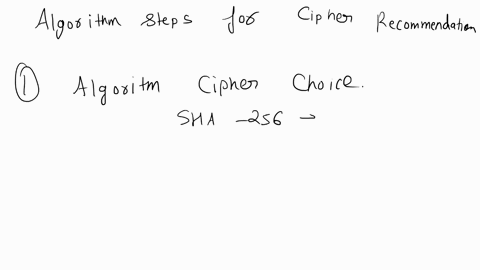 Algorithm steps for Cipher Recommendation
① Algoritm Cipher Choice.
SHA -256 →